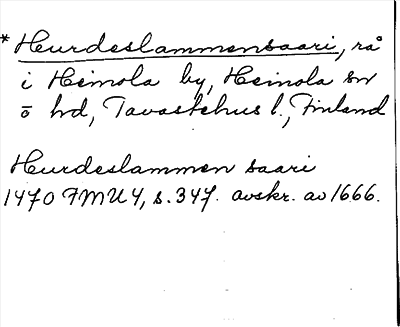 * Heurdeslammensaari, rå
i Heinola by, Heinola sn
ö hd, Tavastehus l., Finland
Heurdeslammen saari
1470 FMU 4, s. 347. avskr. av 1666.